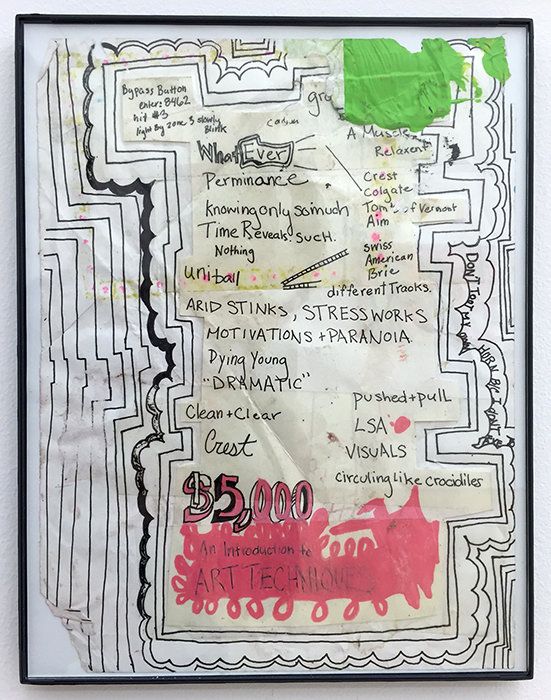 Bypass Button
enter: 8462
hit #3
light By zone 3 slowly
Blink
A Muscle
Relaxent
WhatEver
Perminance
Knowing only so much
Time Reveals. Such.
Nothing
uniball
Crest
Colgate
Tom's of Vermont
Aim
swiss
American
Brie
different Tracks.
ARID STINKS, STRESS WORKS
MOTIVATIONS + PARANOIA
Dying Young
"DRAMATIC"
Clean + Clear
Crest
pushed + pull
LSA
VISUALS
circuling Like Crocidiles
$5,000
An Introduction to
ART TECHNIQUES
DON'T TOOT MY OWN
HORN B/C I DON'T